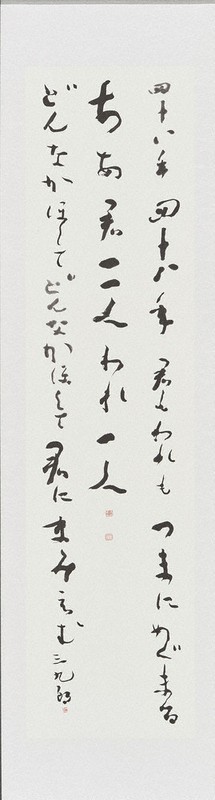 四十八年 四十八年 君もわれも つまにめぐまる
君二人われ一人
どんなかほして どんなかほして 君にまみえむ